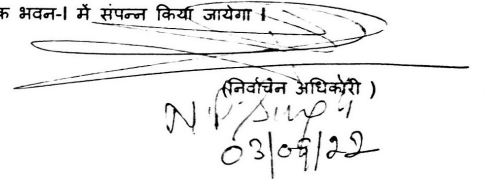 क भवन-I में संपन्न किया जायेगा ।
(निर्वाचन अधिकारी )
03/09/22